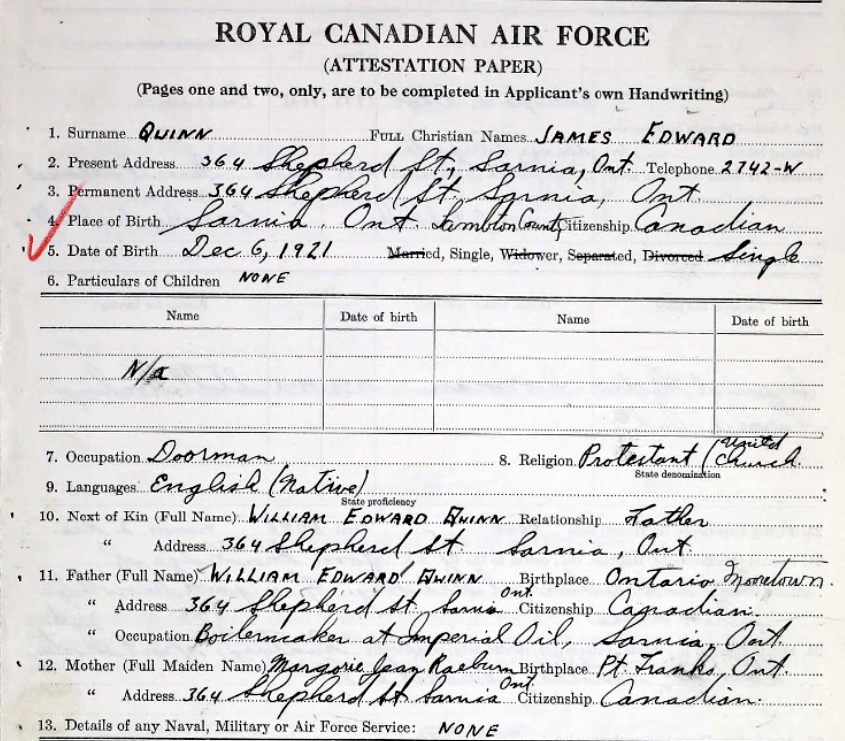 ROYAL CANADIAN AIR FORCE
(ATTESTATION PAPER)
(Pages one and two, only, are to be completed in Applicant's own Handwriting)
1. Surname QUINN FULL Christian Names JAMES EDWARD
2. Present Address 364 Shepherd St., Sarnia, Ont. Telephone 2742-W
3. Permanent Address 364 Shepherd St., Sarnia, Ont
4. Place of Birth Sarnia, Ont. Lambton County Citizenship Canadian
5. Date of Birth Dec 6, 1921 Married, Single, Widower, Separated, Divorced Single
6. Particulars of Children NONE
Name Date of birth Name Date of birth
N/a
7. Occupation Doorman 8. Religion Protestant (United Church
State denomination
9. Languages English (Native)
State proficiency
10. Next of Kin (Full Name) WILLIAM EDWARD QUINN Relationship Father
" Address 364 Shepherd St Sarnia, Ont.
11. Father (Full Name) WILLIAM EDWARD QUINN Birthplace Ontario Mooretown.
" Address 364 Shepherd St Sarnia Ont. Citizenship Canadian
" Occupation Boilermaker at Imperial Oil, Sarnia, Ont
12. Mother (Full Maiden Name) Margorie Jean Raeburn Birthplace Pt. Franks, Ont.
" Address 364 Shepherd St Sarnia Ont. Citizenship Canadian.
13. Details of any Naval, Military or Air Force Service: NONE